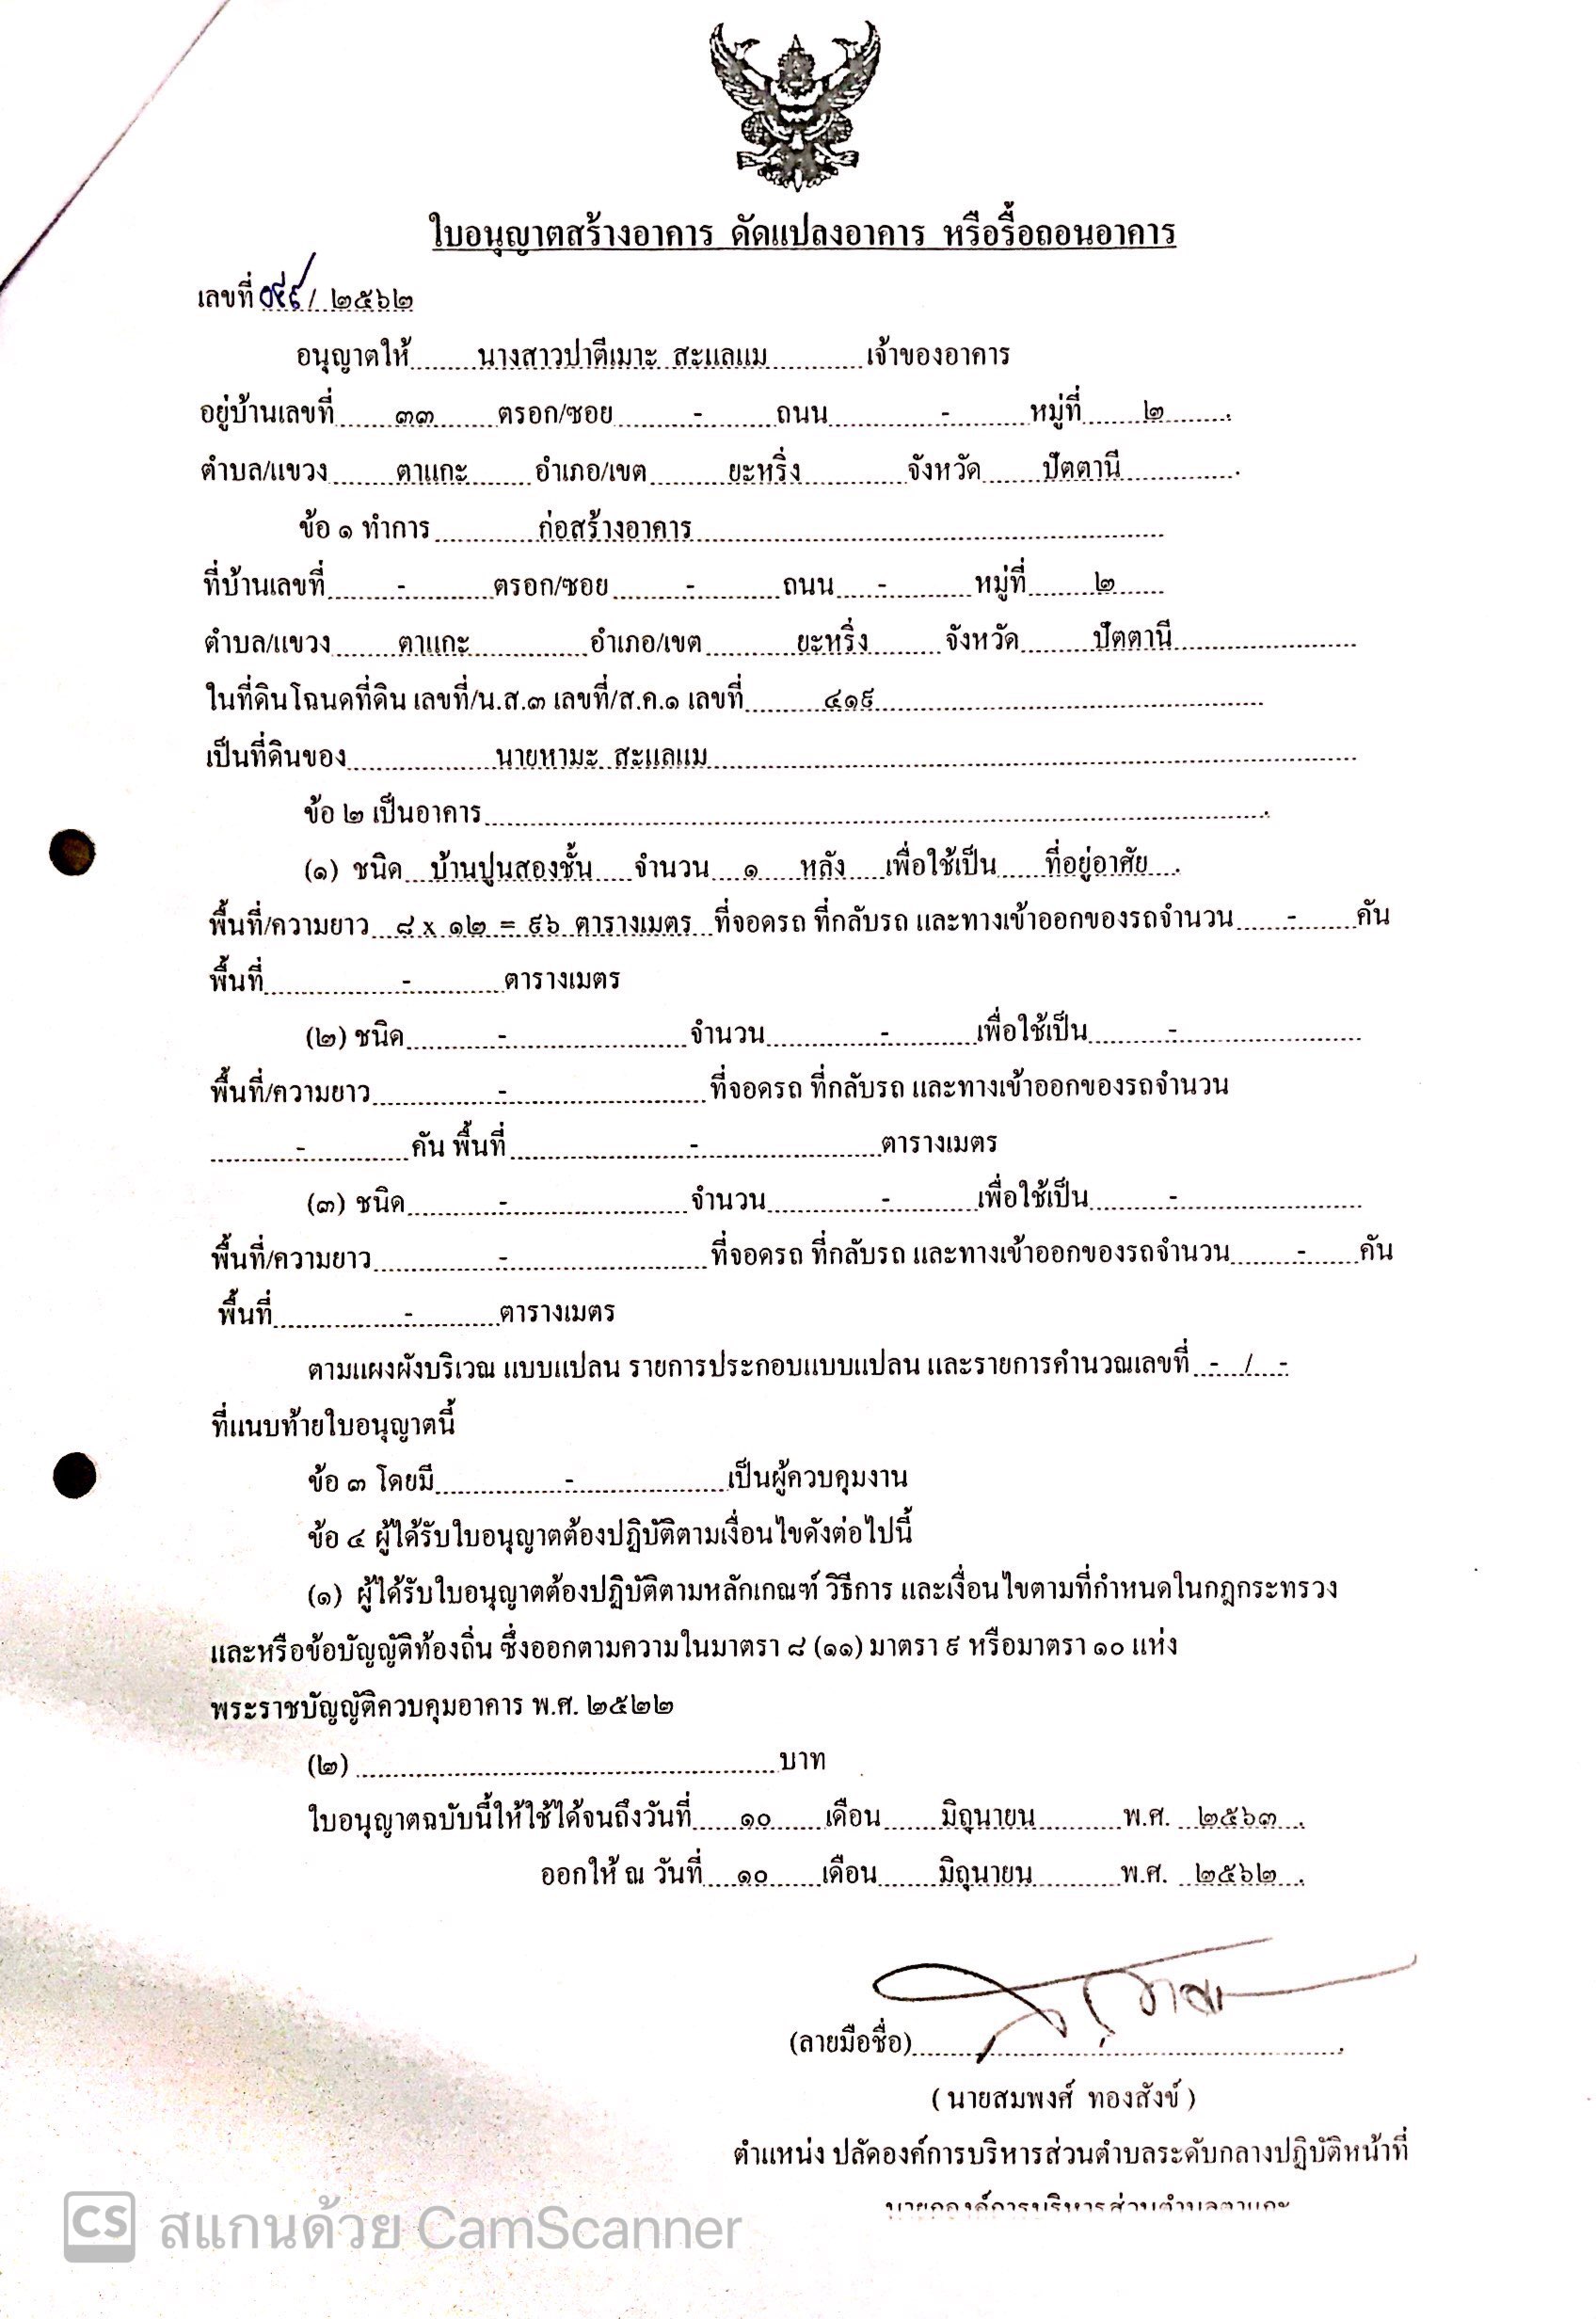 ใบอนุญาตสร้างอาคาร ดัดแปลงอาคาร หรือรื้อถอนอาคาร
เลขที่ / ๒๕๖๒
อนุญาตให้ นางสาวปาตีเมาะ สะแลแม เจ้าของอาคาร
อยู่บ้านเลขที่ ๓๓ ตรอก/ซอย - ถนน - หมู่ที่ ๒
ตำบล/แขวง ตาแกะ อำเภอ/เขต ยะหริ่ง จังหวัด ปัตตานี
ข้อ ๑ ทำการ ก่อสร้างอาคาร
ที่บ้านเลขที่ - ตรอก/ซอย - ถนน - หมู่ที่ ๒
ตำบล/แขวง ตาแกะ อำเภอ/เขต ยะหริ่ง จังหวัด ปัตตานี
ในที่ดินโฉนดที่ดิน เลขที่/น.ส.๓ เลขที่/ส.ค.๑ เลขที่ ๔๑๙
เป็นที่ดินของ นายหามะ สะแลแม
ข้อ ๒ เป็นอาคาร
(๑) ชนิด บ้านปูนสองชั้น จำนวน ๑ หลัง เพื่อใช้เป็น ที่อยู่อาศัย
พื้นที่/ความยาว ๘ x ๑๒ = ๙๖ ตารางเมตร ที่จอดรถ ที่กลับรถ และทางเข้าออกของรถจำนวน - คัน
พื้นที่ - ตารางเมตร
(๒) ชนิด - จำนวน - เพื่อใช้เป็น -
พื้นที่/ความยาว - ที่จอดรถ ที่กลับรถ และทางเข้าออกของรถจำนวน
- คัน พื้นที่ - ตารางเมตร
(๓) ชนิด - จำนวน - เพื่อใช้เป็น -
พื้นที่/ความยาว - ที่จอดรถ ที่กลับรถ และทางเข้าออกของรถจำนวน - คัน
พื้นที่ - ตารางเมตร
ตามแผงผังบริเวณ แบบแปลน รายการประกอบแบบแปลน และรายการคำนวณเลขที่ - / -
ที่แนบท้ายใบอนุญาตนี้
ข้อ ๓ โดยมี - เป็นผู้ควบคุมงาน
ข้อ ๔ ผู้ได้รับใบอนุญาตต้องปฏิบัติตามเงื่อนไขดังต่อไปนี้
(๑) ผู้ได้รับใบอนุญาตต้องปฏิบัติตามหลักเกณฑ์ วิธีการ และเงื่อนไขตามที่กำหนดในกฎกระทรวง
และหรือข้อบัญญัติท้องถิ่น ซึ่งออกตามความในมาตรา ๘ (๑๑) มาตรา ๙ หรือมาตรา ๑๐ แห่ง
พระราชบัญญัติควบคุมอาคาร พ.ศ. ๒๕๒๒
(๒) บาท
ใบอนุญาตฉบับนี้ให้ใช้ได้จนถึงวันที่ ๑๐ เดือน มิถุนายน พ.ศ. ๒๕๖๓
ออกให้ ณ วันที่ ๑๐ เดือน มิถุนายน พ.ศ. ๒๕๖๒
(ลายมือชื่อ)
( นายสมพงศ์ ทองสังข์ )
ตำแหน่ง ปลัดองค์การบริหารส่วนตำบลระดับกลางปฏิบัติหน้าที่
นายกองค์การบริหารส่วนตำบลตาแกะ
CS สแกนด้วย CamScanner